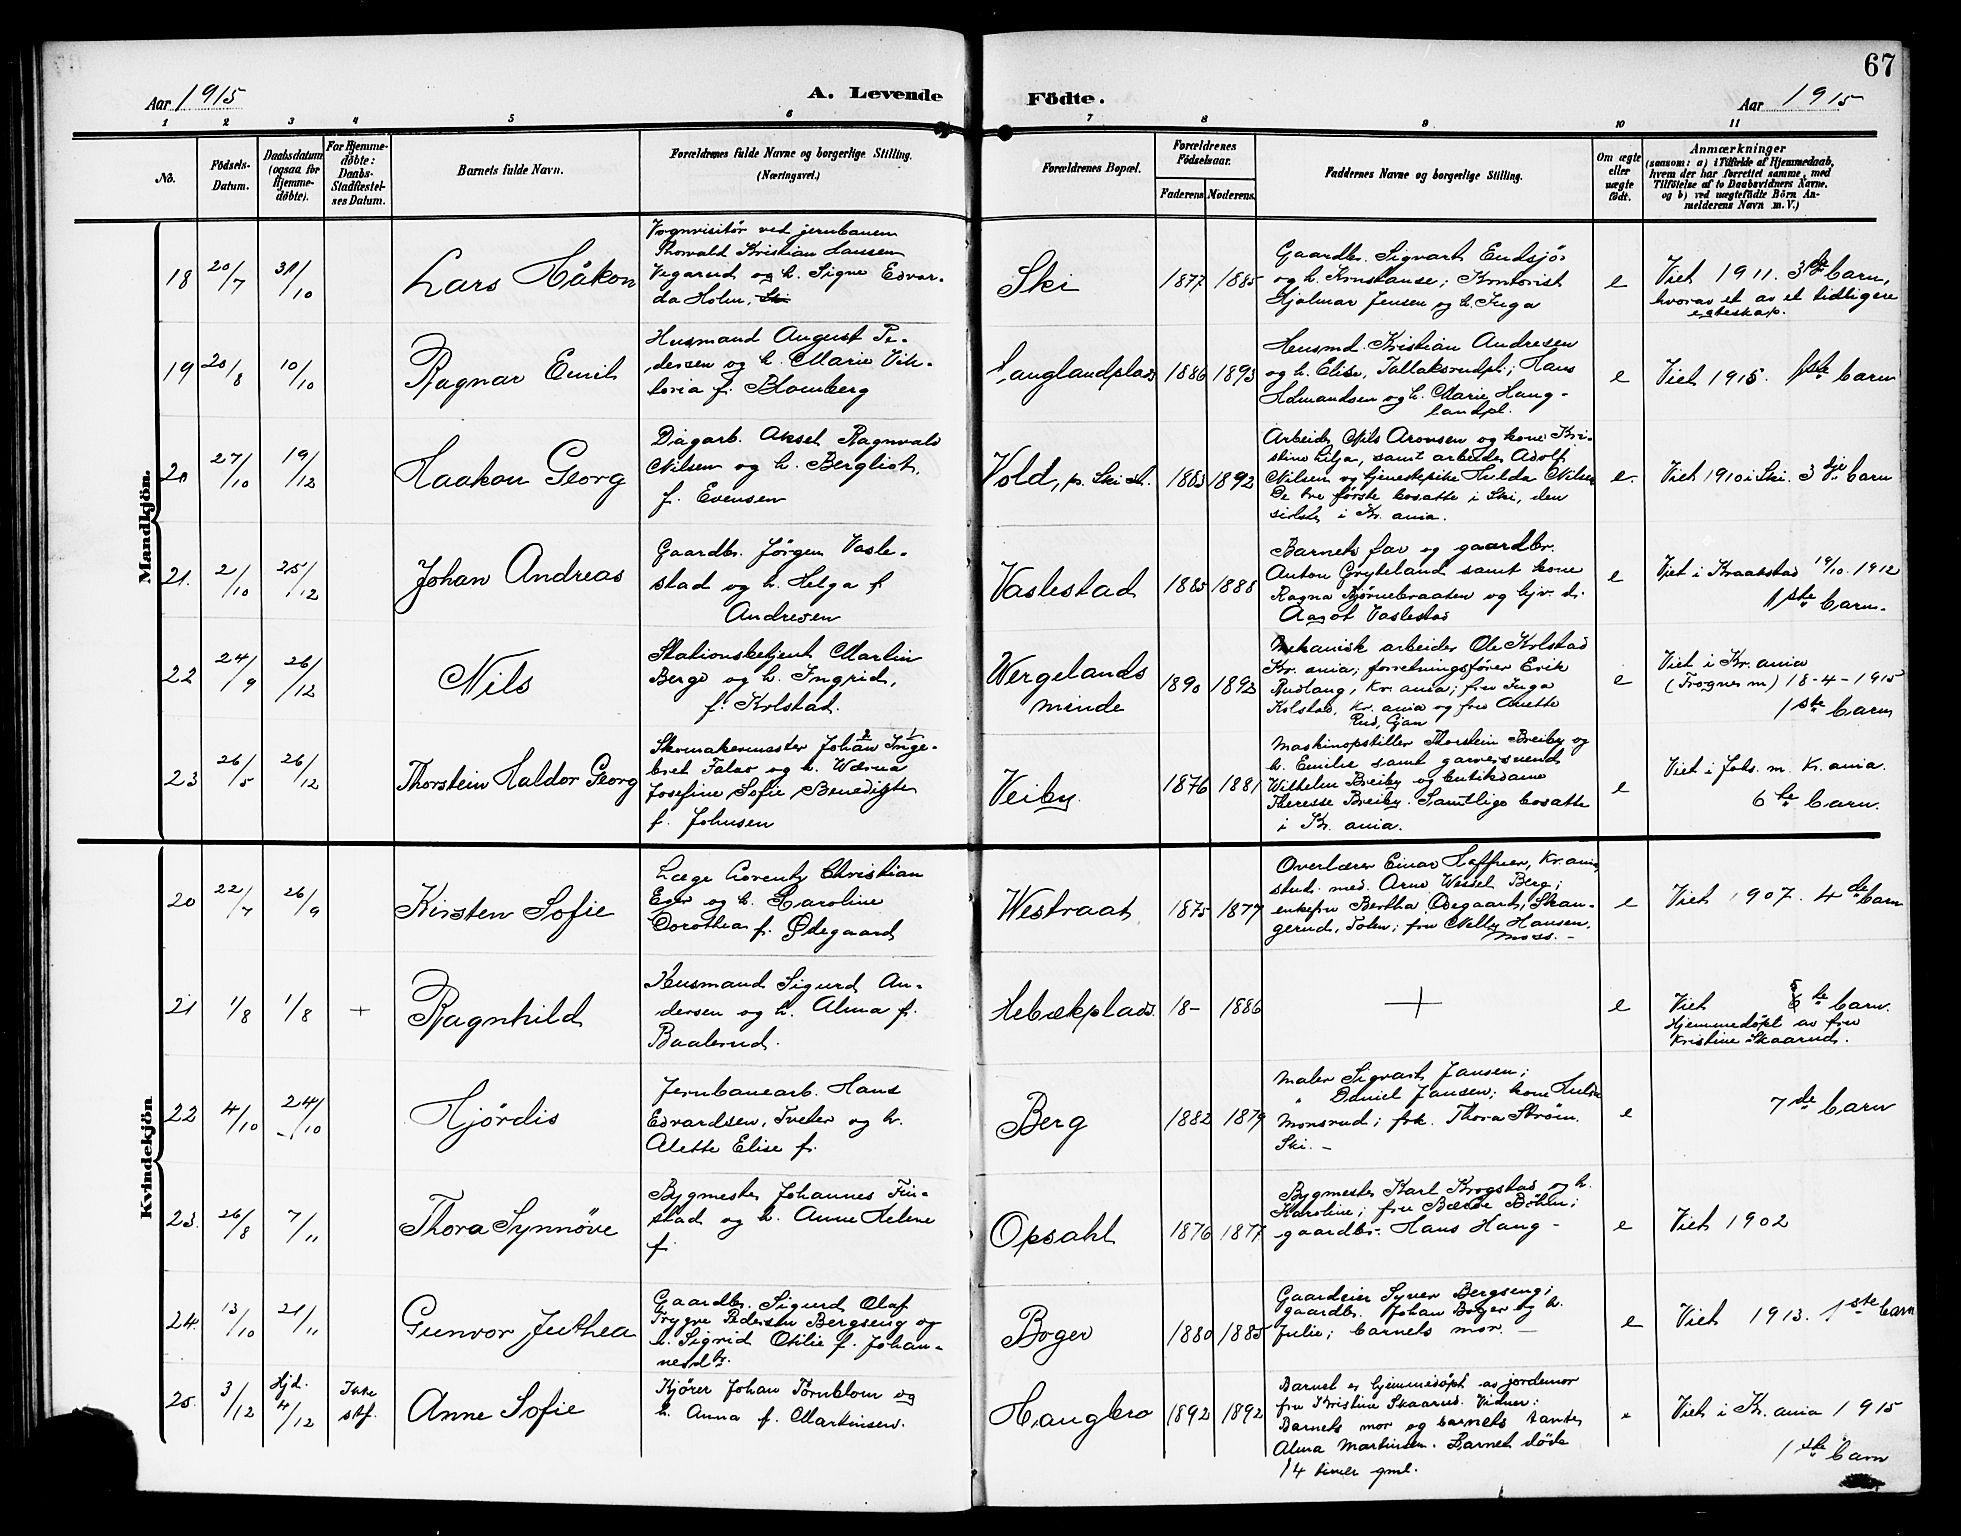 67
Aar 1915
A. Levende
Födte.
Aar 1915
1 2 3 4 5 6 7 8 9 10 11
No.
Födsels-
Datum.
Daabsdatum
(ogsaa for
Hjemme-
døbte).
For Hjemme-
døbte:
Daabs-
Stadfæstel-
ses Datum.
Barnets fulde Navn.
Forældrenes fulde Navne og borgerlige Stilling.
(Næringsvei.)
Forældrenes Bopæl.
Forældrenes
Födselsaar.
Faderens.
Moderens.
Faddernes Navne og borgerlige Stilling.
Om ægte
eller
uægte
födt.
Anmærkninger
(saasom: a) i Tilfælde af Hjemmedaab,
hvem der har forrettet samme, med
Tilföielse af to Daabsvidners Navne.
og b) ved uægtefödte Börn An-
melderens Navn m. V.)
Mandkjön.
18
20/7
31/10
Lars Håkon
Vognvisitör ved jernbanen
Thorvald Kristian Hansen
Vegarud og h. Signe Edvar-
da Holm,
Ski
1877
1885
Gaardbr. Sigvart Endsjø
og h. Konstanse; Kontorist
Hjalmar Jensen og h. Inga
e
Viet 1911. 3die barn,
hvorav et av et tidligere
egteskap.
19
20/8
10/10
Ragnar Emil
Husmand August Pe-
dersen og h. Marie Vik-
toria f. Blomberg
Langlandplads
1886
1893
Husmd. Kristian Andresen
og h. Elise, Tallaksrudpl; Hans
Edmandsen og h. Marie Haug-
landpl.
e
Viet 1915. 1ste barn
20
27/10
19/12
Haakon Georg
Dagarb. Aksel Ragnvald
Nilsen og h. Bergliot,
f. Evensen
Vold, p. Ski st.
1883
1892
Arbeids Nils Aronsen og kone Kri-
stine Lilja, samt arbeider Adolf
Nilsen og tjenestepike Hulda Nilsen
De tre første bosatte i Ski, den
sidste i Kr. ania.
e.
Viet 1910 i Ski. 3 die barn
21.
2/10
25/12
Johan Andreas
Gaardbr. Jørgen Vasle-
stad og h. Helga f.
Andresen
Vaslestad
1885
1888
Barnets far og gaardbr.
Anton Gryteland samt kone
Ragna Bjørnebraaten og hjv. d.
Aagot Vaslestad
e
Viet i Kraakstad 19/10. 1912
1ste barn.
22
24/9
26/12
Nils
Stationsbetjent Martin
Berge og h. Ingrid,
f. Kolstad.
Wergelands
minde
1890
1892
Mekanisk arbeider Ole Kolstad
Kr. ania; forretningsfører Erik
Rudlang, Kr. ania; fru Inga
Kolstad, Kr. ania og fru Anette
Rud, Gjøn
e
Viet i Kr. ania
(Frogner m) 18-4-1915
1ste barn
23
26/5
26/12
Thorstein Haldor Georg
Skomakermester Johan Inge-
bret Falao og h. Wærna
Josefine Sofie Benedigte
f. Johnsen
Veiby.
1876
1881
Maskinopstiller Thorstein Breiby og
h. Emilie samt garversvend
Wilhelm Breiby og butikdame
Theresse Breiby. Samtlige bosatte
i Kr. ania.
e
Viet i Joh. m. Kr. ania.
6te barn.
Kvindekjön
20
22/7
26/9
Kirsten Sofie
Læge Lorentz Christian
Eger og h. Caroline
Dorothea f. Ødegaard
Westraat
1875
1877
Overlærer Einar Høffner, Kr. ania
stud. med. Arne Wessel Berg;
enkefru Bertha Ødegaard, Skau-
gerud, Toten; fru Nelly Hansen.
Moss. -
e
Viet 1907. 4de barn
21
1/8
1/8
+
Ragnhild
Husmand Sigurd An-
dersen og h. Alma f.
Baalerud.
Hebækplads.
18-
1886
+
e
Viet 6te barn.
Hjemmedøpt av fru
Kristine Skaarud.
22
4/10
24/10
Hjördis
Jernbanearb. Hans
Edvardsen, Tveter og h.
Alette Elise f.
Berg
1882
1879
Maler Sigvart Jansen;
" Daniel Jansen; kone Hulda
Monsrud; frk. Thora Strøm.
Ski. -
e
7de barn
23.
26/8
7/11
Thora Synnöve
Bygmester Johannes Fin-
stad og h. Anne Helene
f.
Opsahl
1876
1877
Bygmester Karl Krogstad og h.
Karoline; fru Bærde Böhm;
gaardbr. Hans Haug -
e
Viet 1902
24.
13/10
21/11
Gunvor Juthea
Gaardbr. Sigurd Olaf
Trygve Pedersen Bergseng og
h. Sigrid Otilie f. Johan-
nesdtr.
Boger
1880
1885
Gaardeier Syver Bergseng;
gaardbr. Johan Boger og h.
Julie; barnets mor. -
e
Viet 1913. 1ste barn
25.
3/12
Hjd.
4/12
Ikke
stf.
Anne Sofie
Kjører Johan Törnblom og
h. Anna f. Martinsen.
Haugbro
1892
1892
Barnet er hjemmedøpt av jordmor
fru Kristine Skaarud. Vidner:
Barnets mor og barnets tante
Alma Martinsen. Barnet døde
14 timer gml.
e
Viet i Kr. ania 1915
1ste barn